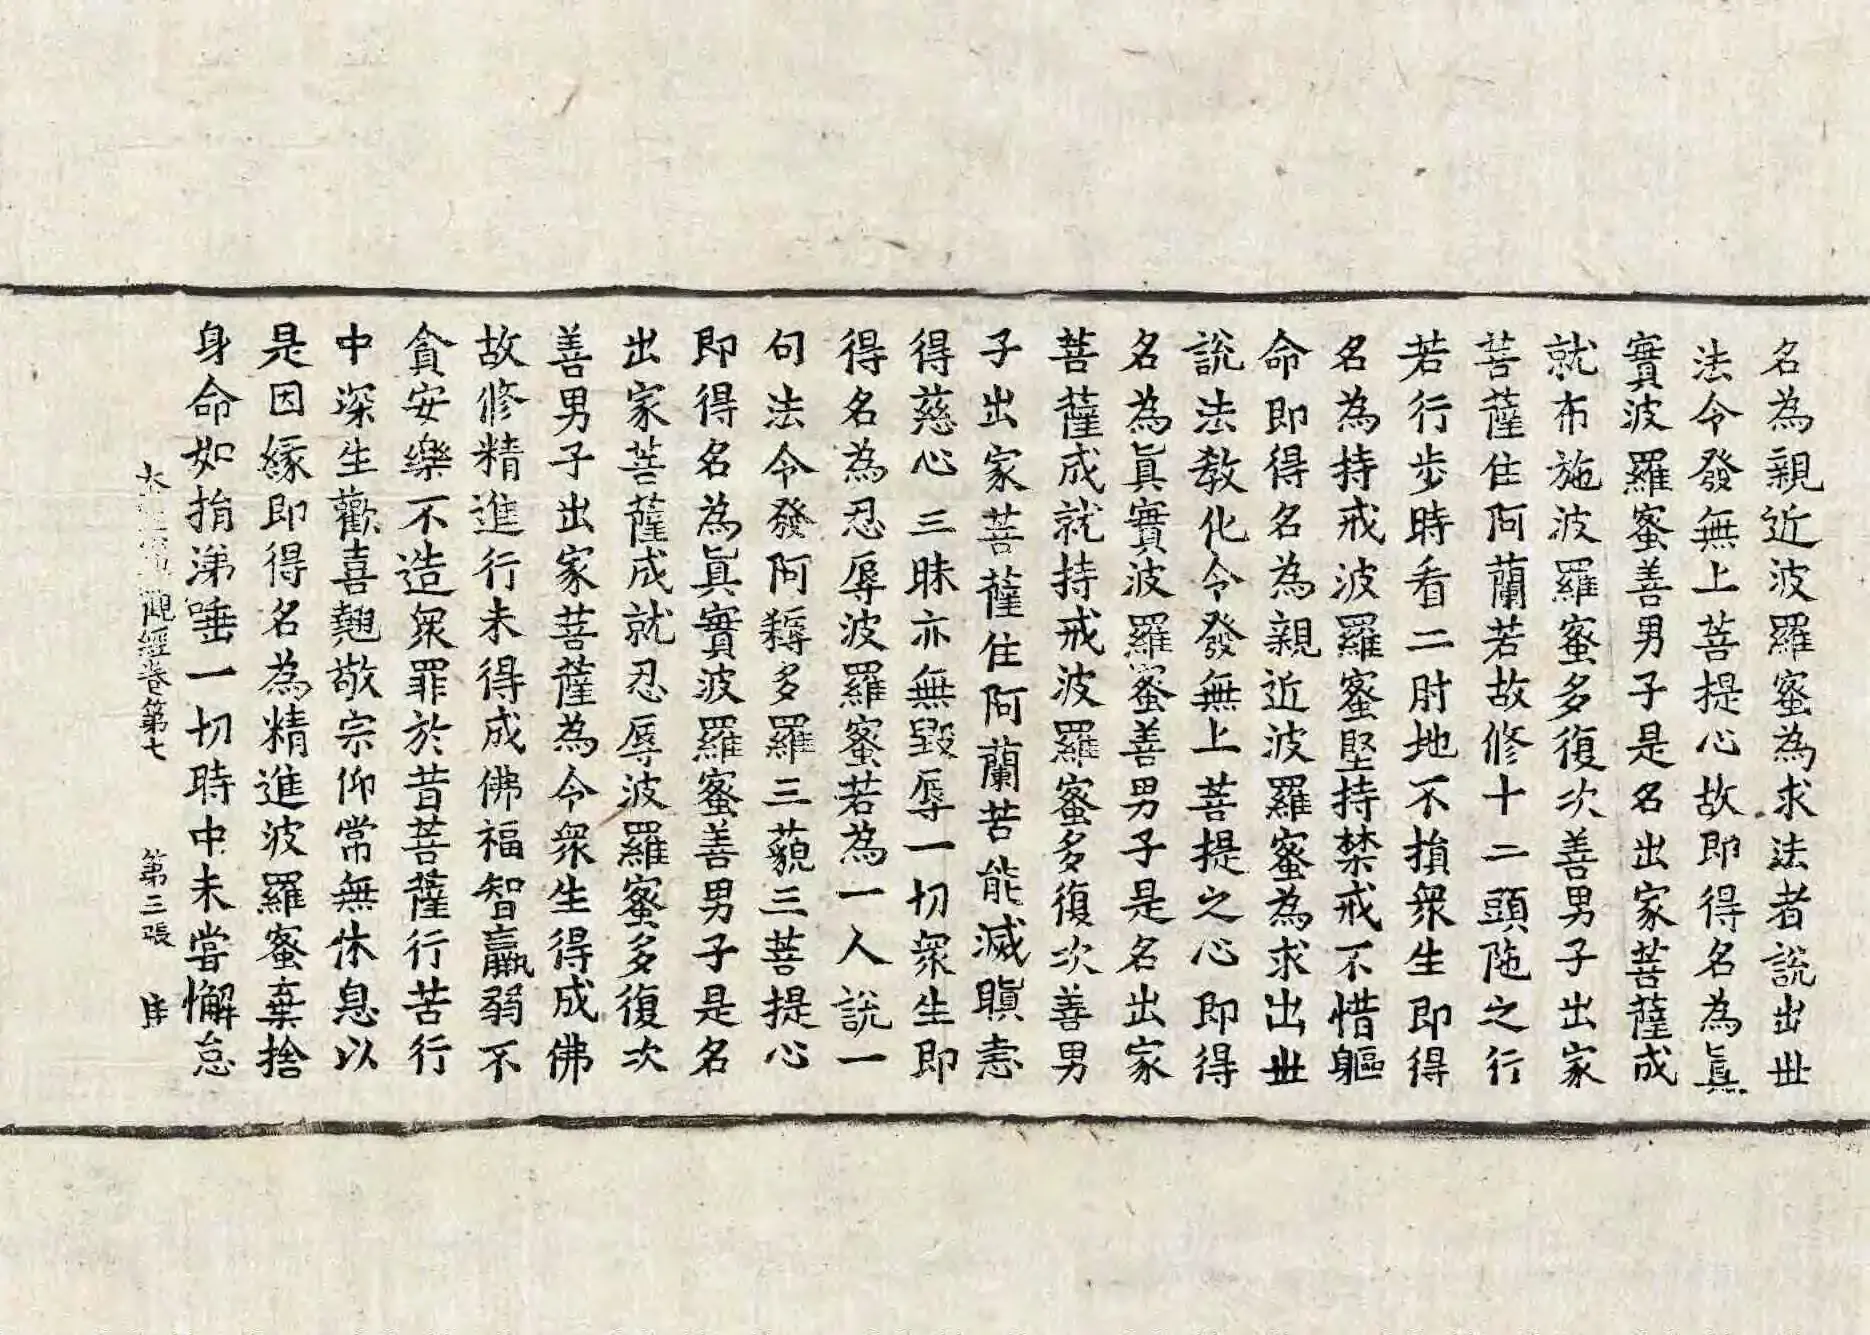 名為親近波羅蜜為求法者說出世
法令發無上菩提心故即得名為眞
實波羅蜜善男子是名出家菩薩成
就布施波羅蜜多復次善男子出家
菩薩住阿蘭若故修十二頭陁之行
若行步時看二肘地不損衆生即得
名為持戒波羅蜜堅持禁戒不惜軀
命即得名為親近波羅蜜為求出世
說法教化令發無上菩提之心即得
名為眞實波羅蜜善男子是名出家
菩薩成就持戒波羅蜜多復次善男
子出家菩薩住阿蘭若能滅瞋恚
得慈心三昧亦無毀辱一切衆生即
得名為忍辱波羅蜜若為一人說一
句法令發阿耨多羅三藐三菩提心
即得名為眞實波羅蜜善男子是名
出家菩薩成就忍辱波羅蜜多復次
善男子出家菩薩為令衆生得成佛
故修精進行未得成佛福智羸弱不
貪安樂不造衆罪於昔菩薩行苦行
中深生歡喜翹敬宗仰常無休息以
是因緣即得名為精進波羅蜜棄捨
身命如捐涕唾一切時中未嘗懈怠
觀經卷第七 第三張